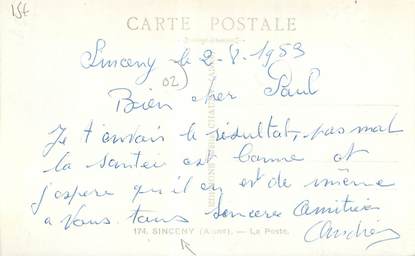 15f
CARTE POSTALE
Sinceny le 2-8-1953
(02)
Bien cher Paul
Je t'envoie le résultat, pas mal
la santée est bonne et
j'espere qu'il en est de même
a Vous tous sincères Amitiés
174. SINCENY (Aisne). — La Poste.
Andrée